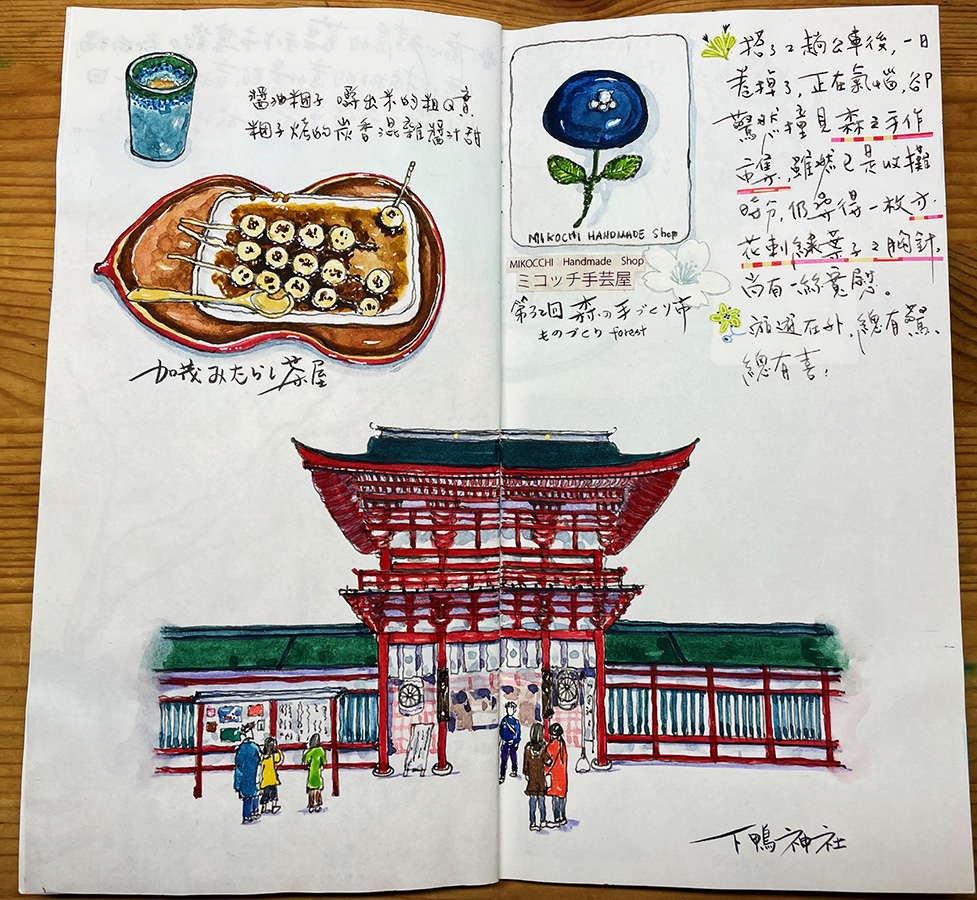 醬油糰子 嚼出米的粗Q實
糰子烤的炭香混雜醬汁甜
加茂みたらし茶屋
MIKOCHI HANDMADE Shop
MIKOCCHI Handmade Shop
ミコッチ手芸屋
第32回 森の手づくり市
ものづくり forest
搭了2趟公車後,一日
卷掉了,正在氣惱,卻
驚然撞見森之手作
市集,雖然已是收攤
時分,仍尋得一枚布
花刺繡葉子之胸針,
尚有一絲寬慰。
旅遊在外,總有驚、
總有喜!
下鴨神社